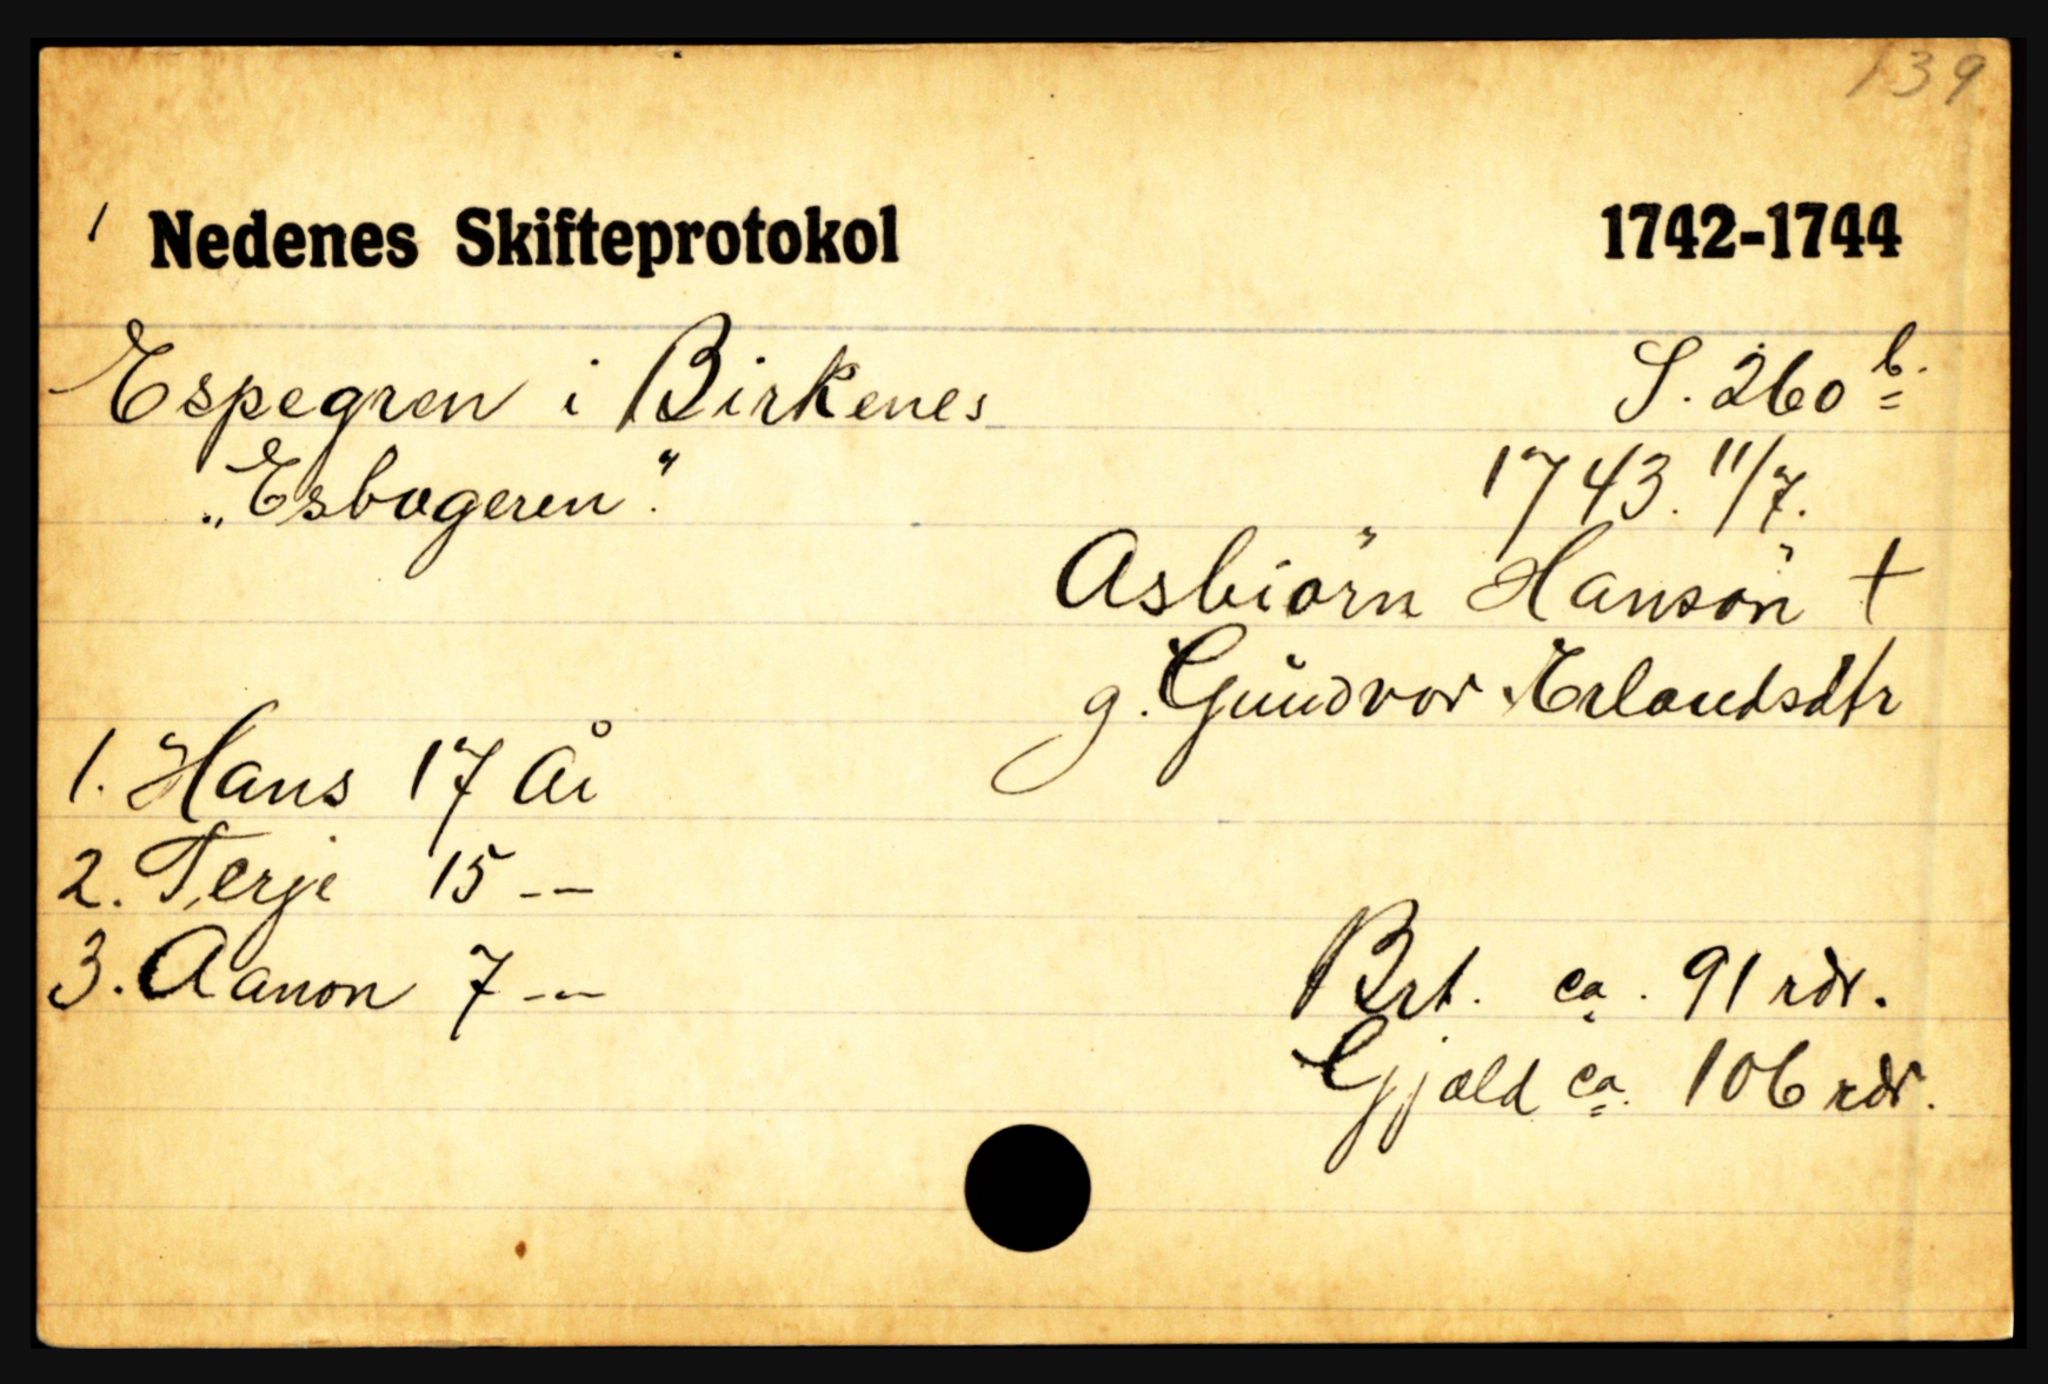 139
1 Nedenes Skifteprotokol 1742-1744
Espegren i Birkenes S. 260 b.
„Esbogeren". 1743. 11/7.
Asbiörn Hansön †
g. Gundvor Erlandsdtr
1. Hans 17 År
2. Terje 15 --
3. Aanon 7 --
Brt. ca. 91 rdr.
Gjæld ca. 106 rdr.